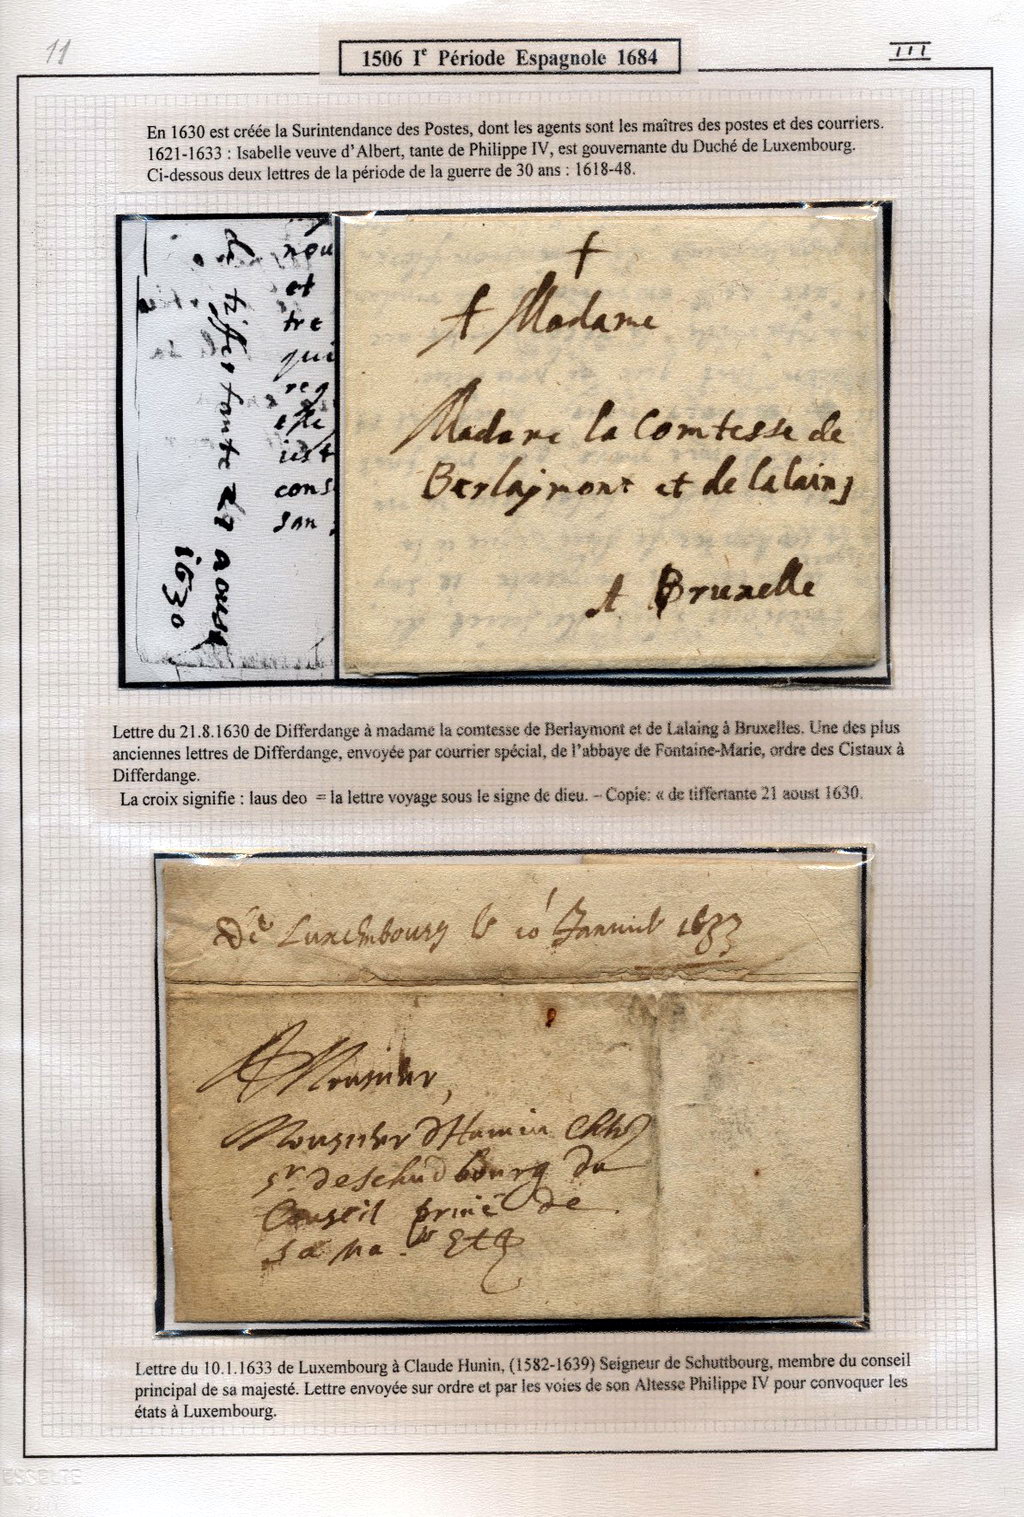 11
1506 Iᵉ Période Espagnole 1684
III
En 1630 est créée la Surintendance des Postes, dont les agents sont les maîtres des postes et des courriers.
1621-1633 : Isabelle veuve d'Albert, tante de Philippe IV, est gouvernante du Duché de Luxembourg.
Ci-dessous deux lettres de la période de la guerre de 30 ans : 1618-48.
de tiffertante 21 aoust
1630
nou
et
tre
qui
reg
este
iust
cons
san
A Madame
Madame la Comtesse de
Berlaymont et de lalaing
A Bruxelle
Lettre du 21.8.1630 de Differdange à madame la comtesse de Berlaymont et de Lalaing à Bruxelles. Une des plus
anciennes lettres de Differdange, envoyée par courrier spécial, de l'abbaye de Fontaine-Marie, ordre des Cistaux à
Differdange.
La croix signifie : laus deo = la lettre voyage sous le signe de dieu. – Copie: « de tiffertante 21 aoust 1630.
De Luxembourg le 10 Janvier 1633
A Monsieur,
Monsieur d'Hunin
sr de Schudbourg du
Conseil privé de
sa Ma.te Etc
Lettre du 10.1.1633 de Luxembourg à Claude Hunin, (1582-1639) Seigneur de Schuttbourg, membre du conseil
principal de sa majesté. Lettre envoyée sur ordre et par les voies de son Altesse Philippe IV pour convoquer les
états à Luxembourg.
ESSELTE